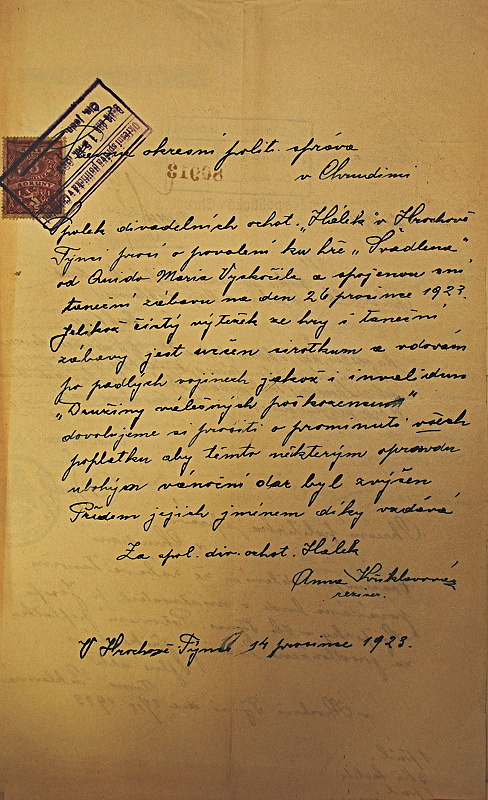 okresní polit. správa
v Chrudimi
80913
Spolek divadelních ochot. „Hálek" v Hrochově
Týnci prosí o povolení ku hře „Švadlena"
od Quido Maria Vyskočila a spojenou s ní
taneční zábavu na den 26 prosince 1923.
Jelikož čistý výtěžek ze hry i taneční
zábavy jest určen sirotkum a vdovám
po padlých vojínech jakož i invalidum
„Družiny válečných poškozenců"
dovolujeme si prositi o prominutí všech
poplatku aby těmto některým opravdu
ubohým vánoční dar byl zvýšen
Předem jejich jménem díky vzdává
Za spol. div. ochot. Hálek
Anna
režiser.
V Hrochově Týnci 14 prosince 1923.